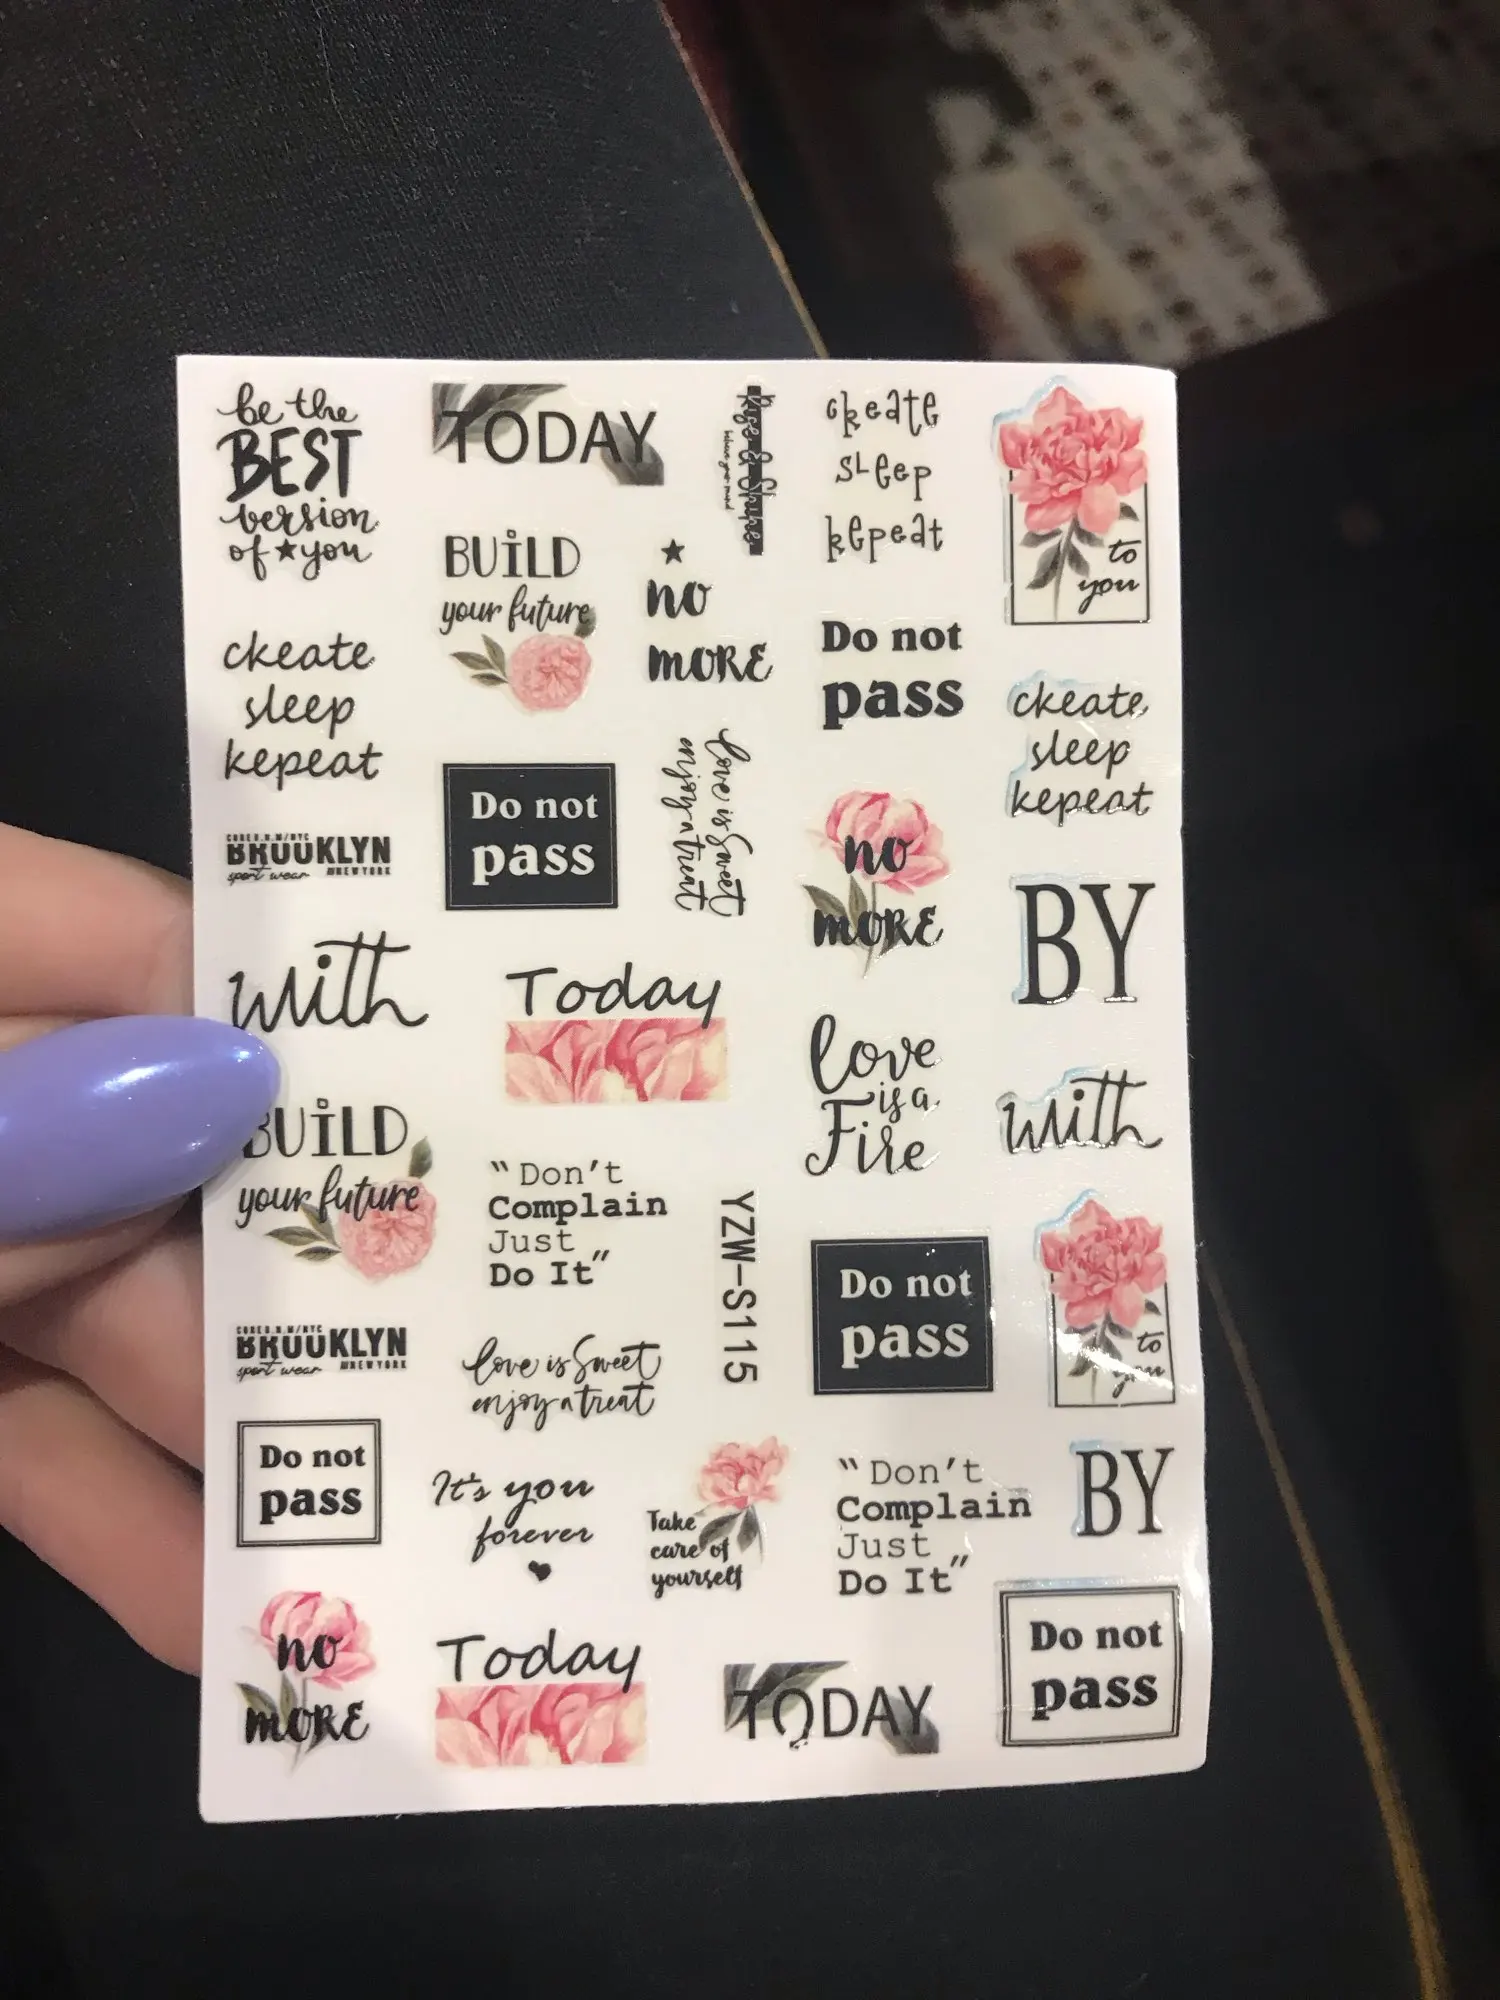 be the
BEST
version
of ★ you
TODAY
Rise & Shine
ckeate
sleep
kepeat
to
you
BUiLD
your future
★
no
MORE
Do not
pass
ckeate
sleep
kepeat
ckeate
sleep
kepeat
Do not
pass
love is Sweet
enjoy a treat
no
MORE
BROOKLYN
sport wear #NEWYORK
BY
with
Today
love
is a
Fire
with
BUiLD
your future
"Don't
Complain
Just
Do It"
YZW-S115
Do not
pass
to
you
BROOKLYN
sport wear #NEWYORK
love is Sweet
enjoy a treat
Do not
pass
It's you
forever
Take
care of
yourself
"Don't
Complain
Just
Do It"
BY
no
MORE
Today
TODAY
Do not
pass